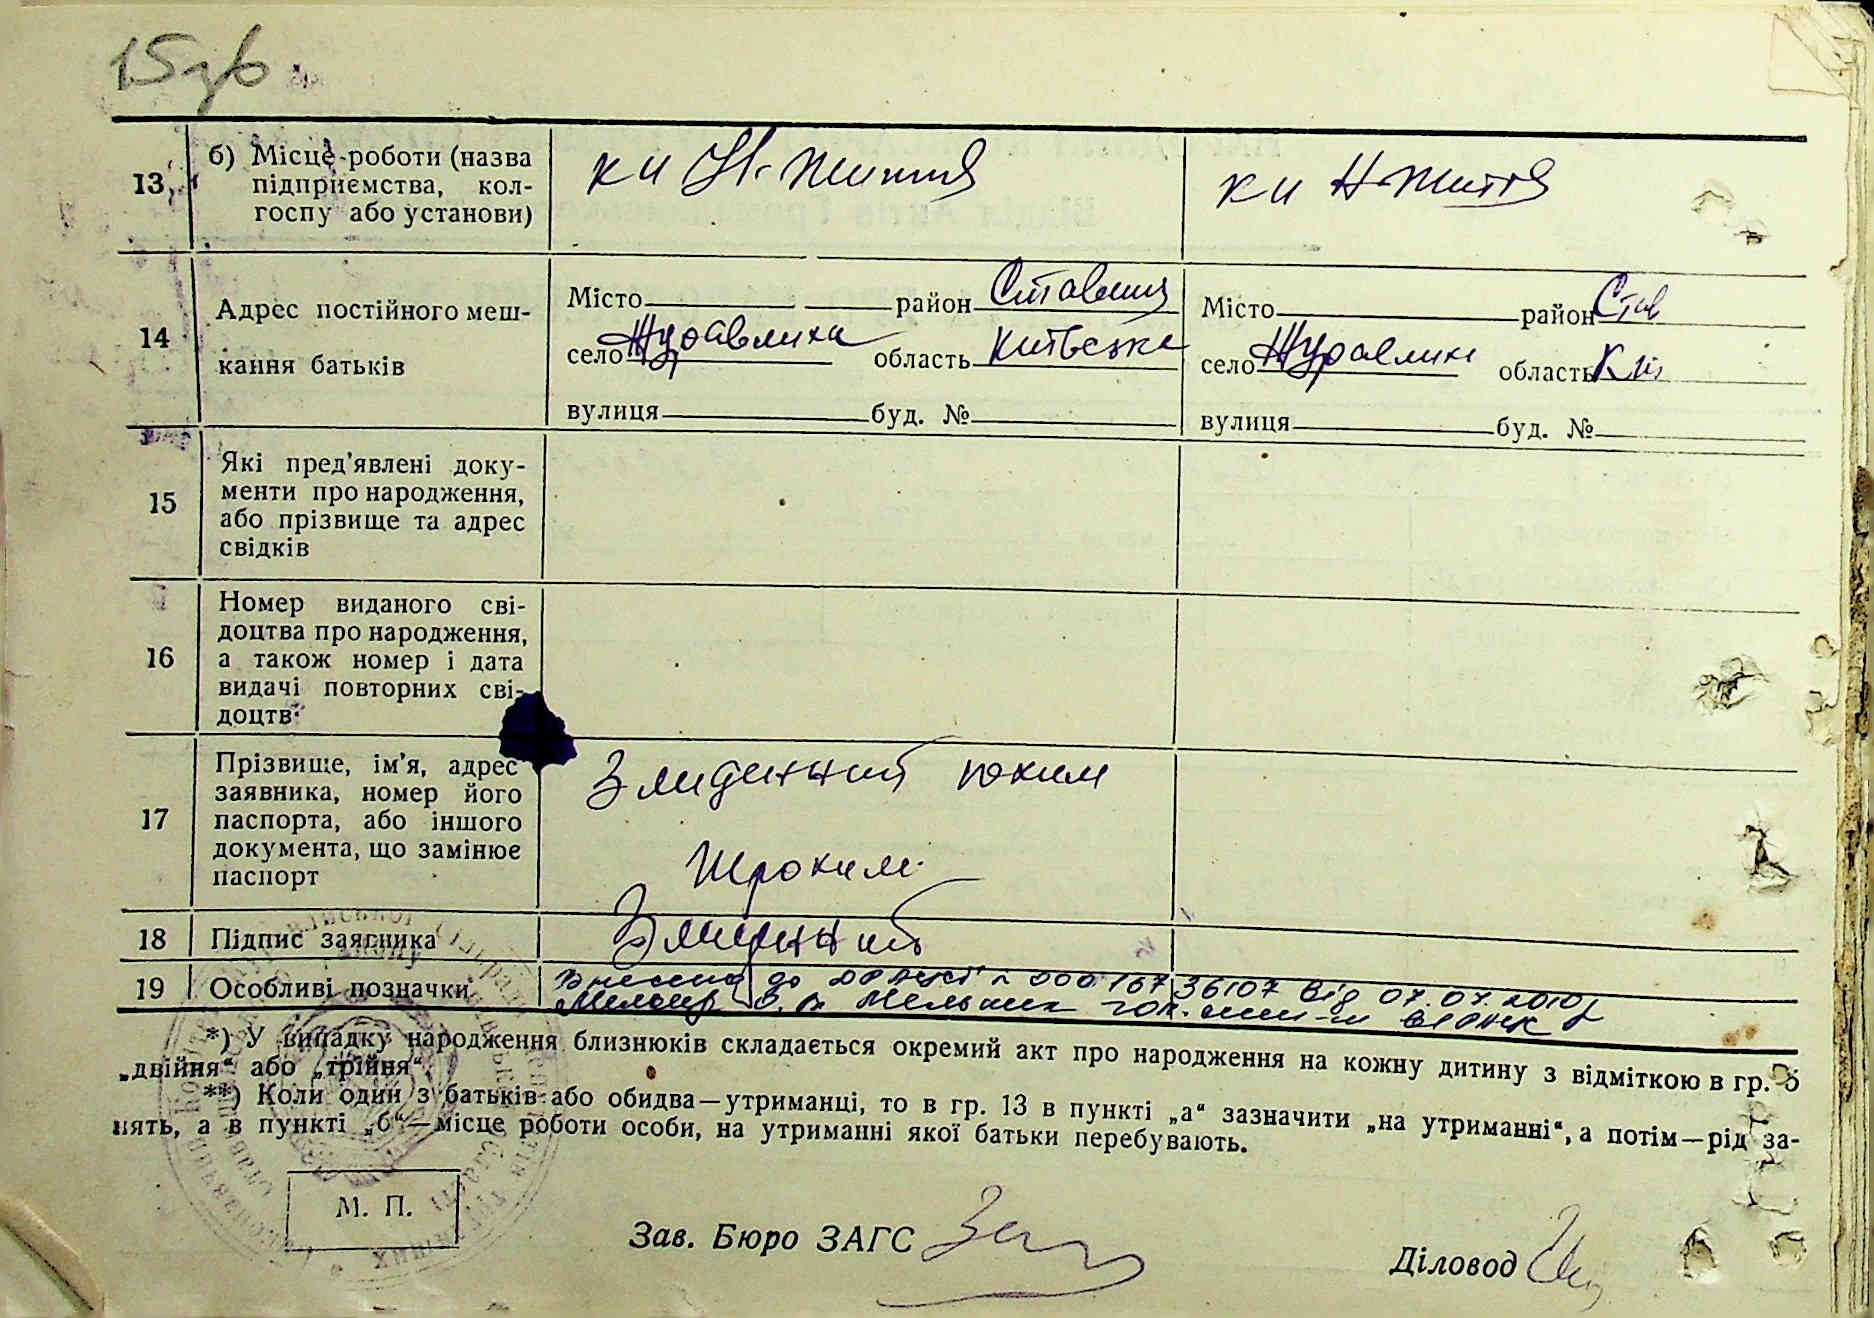 15 зв.
13, б) Місце роботи (назва
підприємства, кол-
госпу або установи)
кн Н-життя
кн Н-життя
14 Адрес постійного меш-
кання батьків
Місто район Ставищ
село Журавлиха область Київська
вулиця буд. №
Місто район Став
село Журавлих область Київ
вулиця буд. №
15 Які пред'явлені доку-
менти про народження,
або прізвище та адрес
свідків
16 Номер виданого сві-
доцтва про народження,
а також номер і дата
видачі повторних сві-
доцтв
17 Прізвище, ім'я, адрес
заявника, номер його
паспорта, або іншого
документа, що замінює
паспорт
Злиденний Юхим
Трохим
18 Підпис заявника
19 Особливі позначки
Внесено до ДРАЦСГ 000 167 36107 від 07.07.2010р
*) У випадку народження близнюків складається окремий акт про народження на кожну дитину з відміткою в гр. 5
„двійня“ або „трійня“.
**) Коли один з батьків або обидва—утриманці, то в гр. 13 в пункті „а“ зазначити „на утриманні“, а потім—рід за-
нять, а в пункті „б“—місце роботи особи, на утриманні якої батьки перебувають.
М. П.
Зав. Бюро ЗАГС
Діловод